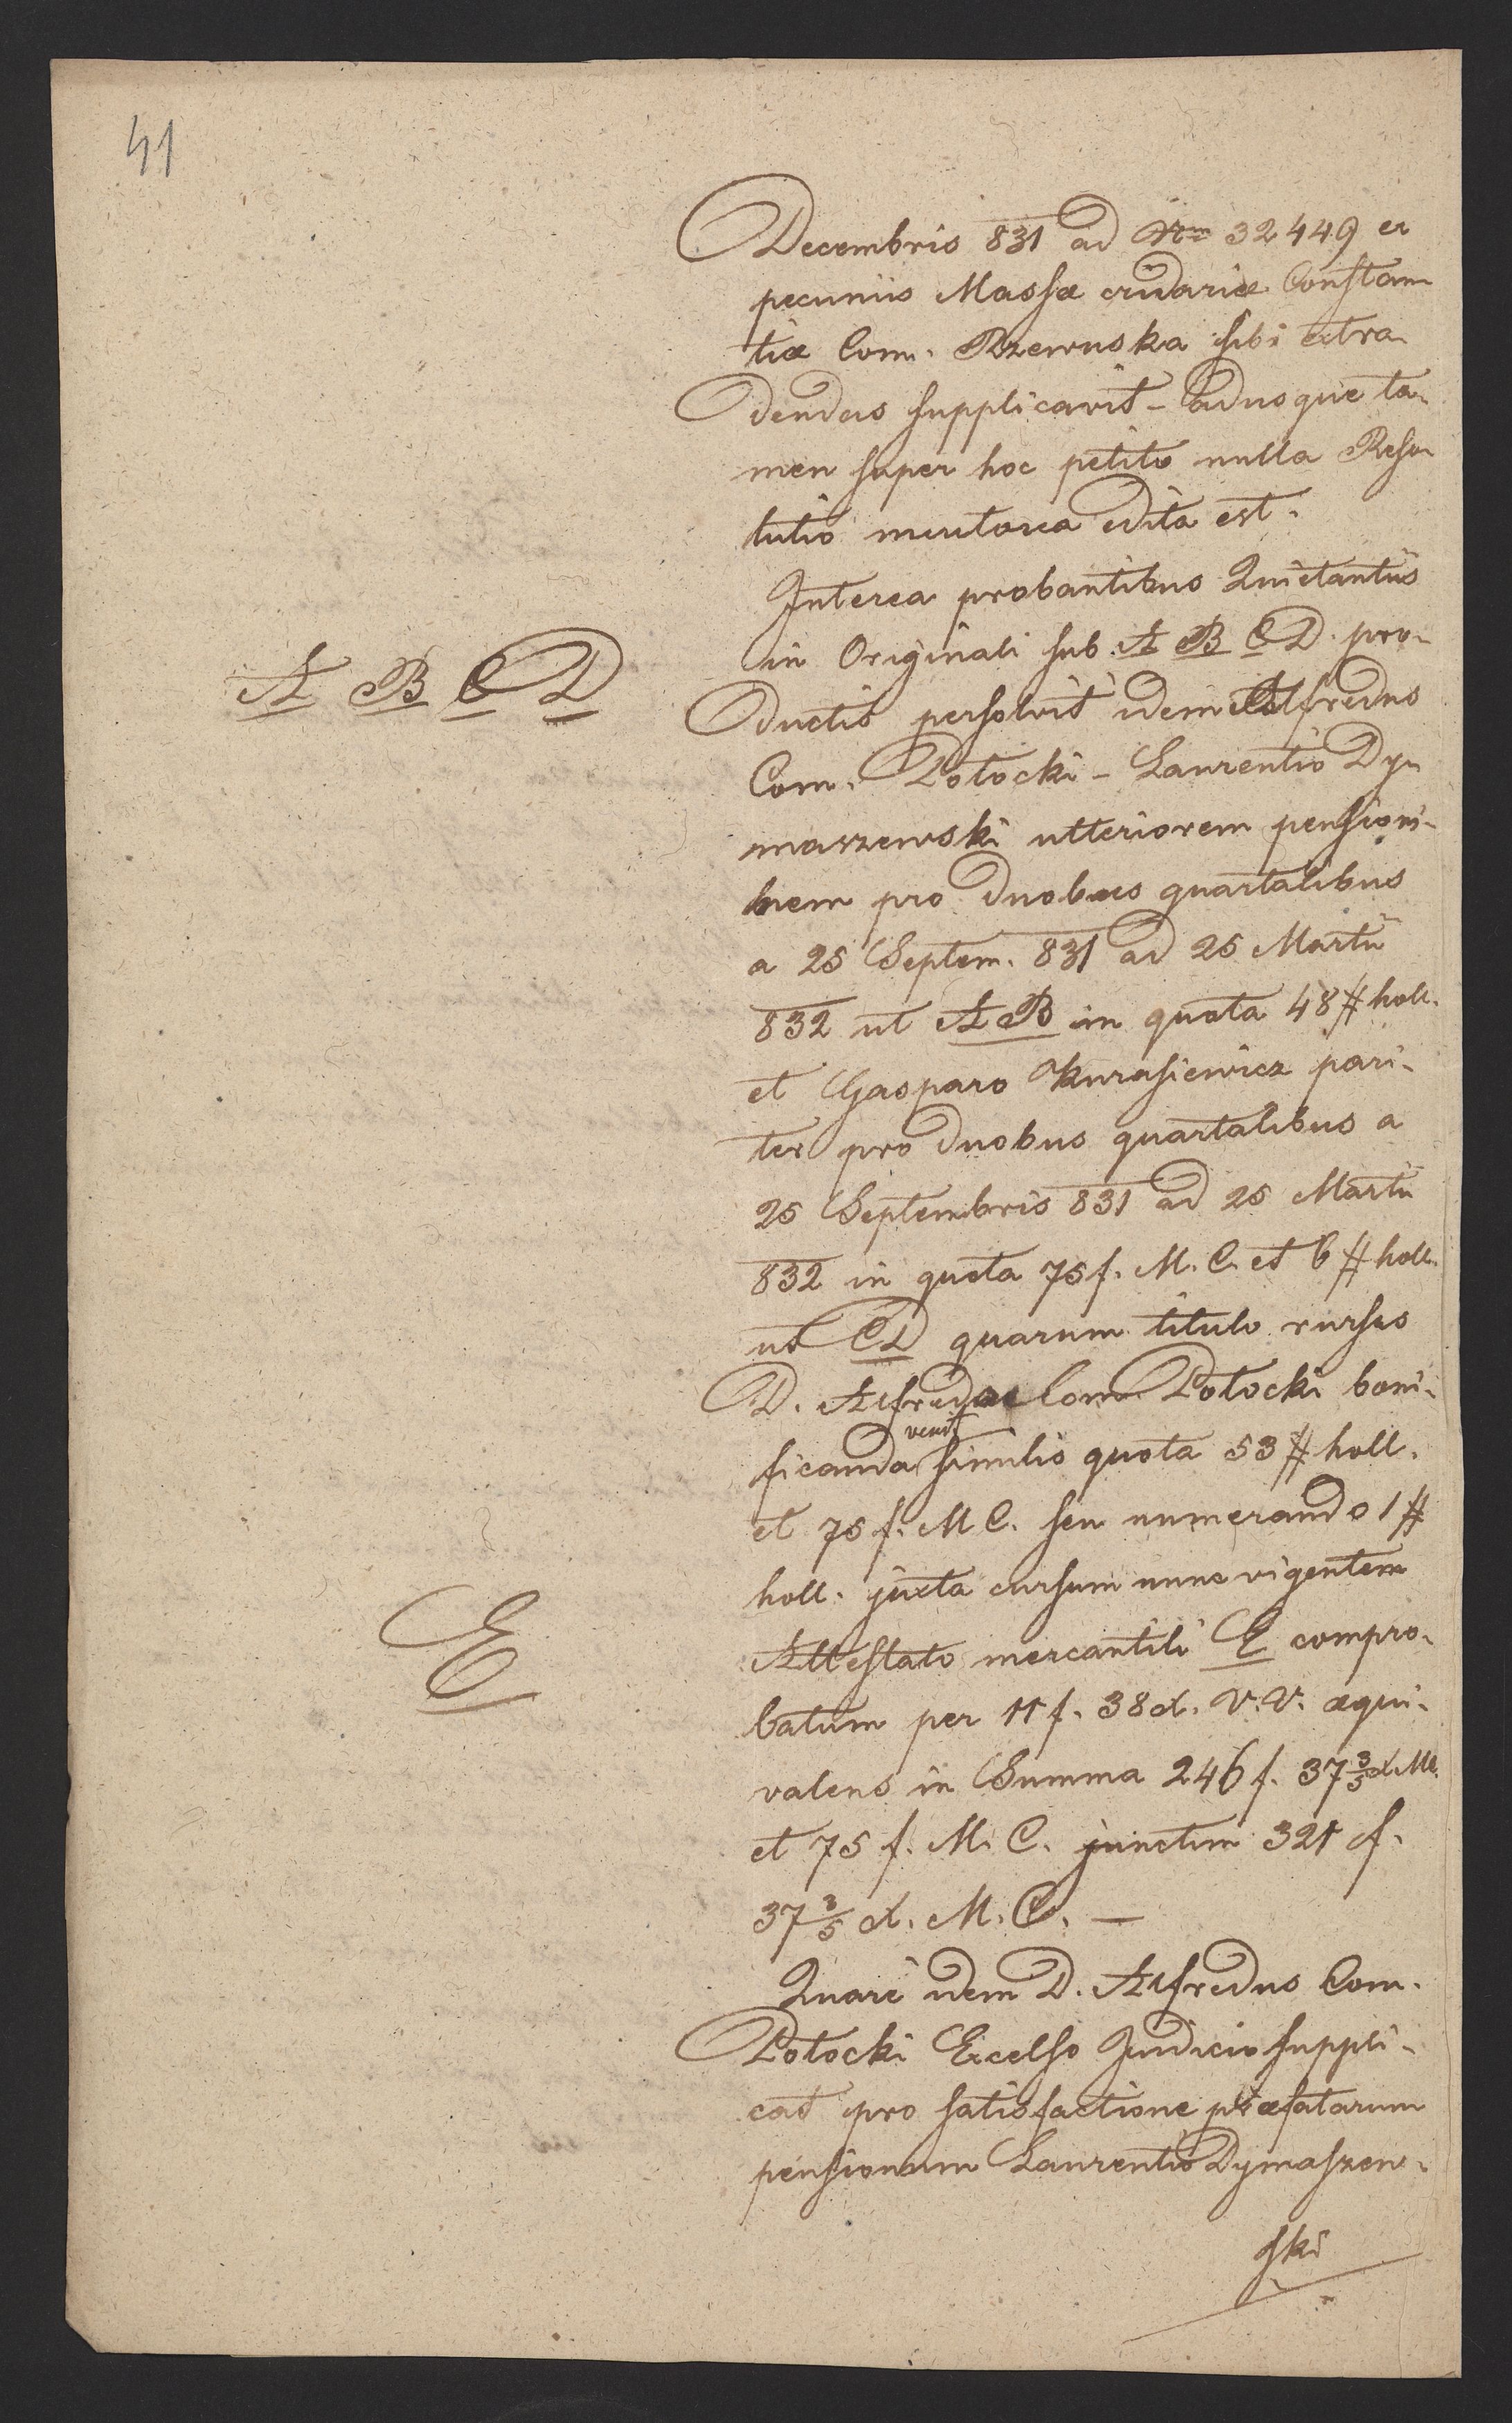 41
Decembris 831 ad Nrm 32449 ex
pecuniis Massæ cridariæ Constan
tiæ Com. Rzewuska sibi extra
dendas supplicavit – adusque ta-
men super hoc petito nulla Reso-
lutio meritoria edita est.
Interea probantibus Quietantiis
A B C D
in Originali sub. A B C D. pro-
ductis persolvit idem Alfredus
Com. Potocki – Laurentio Dy-
maszewski ulteriorem pensioni-
nem pro duobus quartalibus
a 25 Septem. 831 ad 25 Martii
832 ut A B in quota 48 # holl.
et Gasparo Kurasiewicz pari-
ter pro duobus quartalibus a
25 Septembris 831 ad 25 Martii
832 in quota 75 f. M. C. et 6 # holl.
ut C D quarum titulo rursus
D. Alfredo Com. Potocki boni-
venit
ficanda similis quota 53 # holl.
et 75 f. M C. seu numerando 1 #
holl. juxta cursum nunc vigentem
E
Attestato mercantili E compro-
batum per 11 f. 38 d. V. V. æqui-
valens in Summa 246 f. 37 3/5 d MC.
et 75 f. M. C. junctim 321 f.
37 3/5 d. M. C. —
Quare idem D. Alfredus Com.
Potocki Excelso Judicio suppli-
cat pro satisfactione præfatarum
pensionum Laurentio Dymaszew-
ski